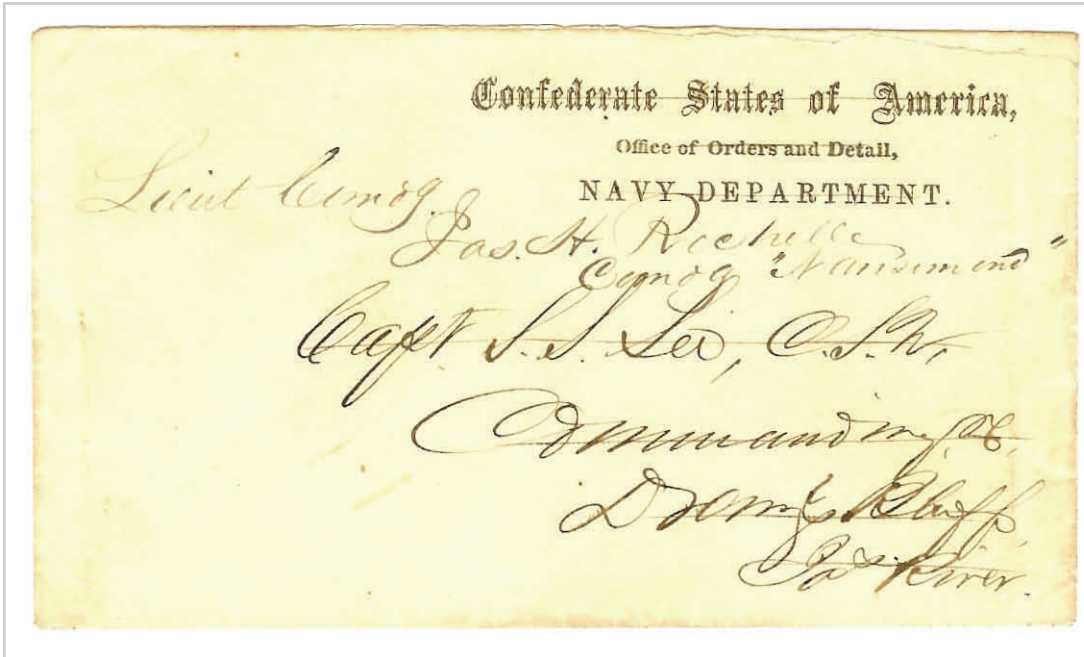 Confederate States of America,
Office of Orders and Detail,
NAVY DEPARTMENT.
Lieut Comdg.
Jas. H. Rochelle
Comdg "Nansemond"
Capt S. S. Lee, C.S.N.
Commanding &c.
Drewry's Bluff,
Jas River.